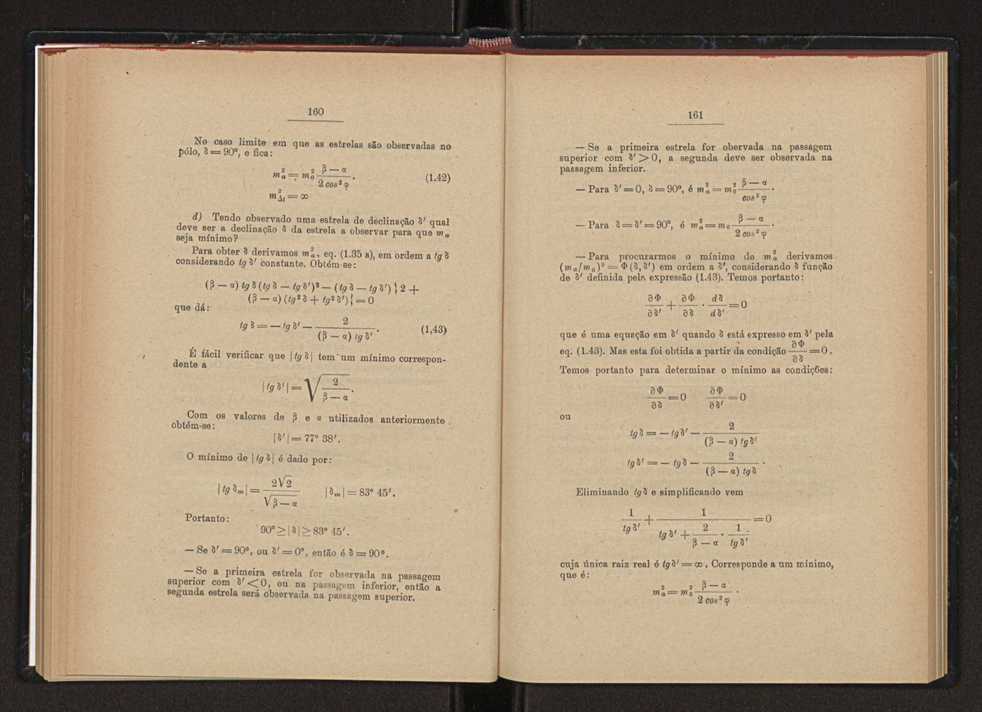 160
No caso limite em que as estrelas são observadas no
pólo, δ = 90°, e fica:
m²ₐ = m²₀ (β — α)/(2 cos² φ). (1.42)
m²_Δt = ∞
d) Tendo observado uma estrela de declinação δ' qual
deve ser a declinação δ da estrela a observar para que mₐ
seja mínimo?
Para obter δ derivamos m²ₐ, eq. (1.35 a), em ordem a tg δ
considerando tg δ' constante. Obtém-se:
(β — α) tg δ (tg δ — tg δ')² — (tg δ — tg δ') } 2 +
(β — α) (tg² δ + tg² δ') { = 0
que dá:
tg δ = — tg δ' — 2/((β — α) tg δ'). (1,43)
É fácil verificar que | tg δ | tem um mínimo correspon-
dente a
| tg δ' | = √(2/(β — α)).
Com os valores de β e α utilizados anteriormente
obtém-se:
| δ' | = 77° 38'.
O mínimo de | tg δ | é dado por:
| tg δₘ | = 2√2/√(β — α) | δₘ | = 83° 45'.
Portanto:
90° ≥ | δ | ≥ 83° 45'.
— Se δ' = 90°, ou δ' = 0°, então é δ = 90°.
— Se a primeira estrela for observada na passagem
superior com δ' < 0, ou na passagem inferior, então a
segunda estrela será observada na passagem superior.
161
— Se a primeira estrela for obervada na passagem
superior com δ' > 0, a segunda deve ser observada na
passagem inferior.
— Para δ' = 0, δ = 90°, é m²ₐ = m²₀ (β — α)/(cos² φ).
— Para δ = δ' = 90°, é m²ₐ = m₀ (β — α)/(2 cos² φ).
— Para procurarmos o mínimo de m²ₐ derivamos
(mₐ/m₀)² = Φ (δ, δ') em ordem a δ', considerando δ função
de δ' definida pela expressão (1.43). Temos portanto:
∂Φ/∂δ' + ∂Φ/∂δ · dδ/dδ' = 0
que é uma equação em δ' quando δ está expresso em δ' pela
eq. (1.43). Mas esta foi obtida a partir da condição ∂Φ/∂δ = 0.
Temos portanto para determinar o mínimo as condições:
∂Φ/∂δ = 0 ∂Φ/∂δ' = 0
ou
tg δ = — tg δ' — 2/((β — α) tg δ')
tg δ' = — tg δ — 2/((β — α) tg δ).
Eliminando tg δ e simplificando vem
1/(tg δ') + 1/(tg δ' + 2/(β — α) · 1/(tg δ')) = 0
cuja única raiz real é tg δ' = ∞. Corresponde a um mínimo,
que é:
m²ₐ = m²₀ (β — α)/(2 cos² φ).